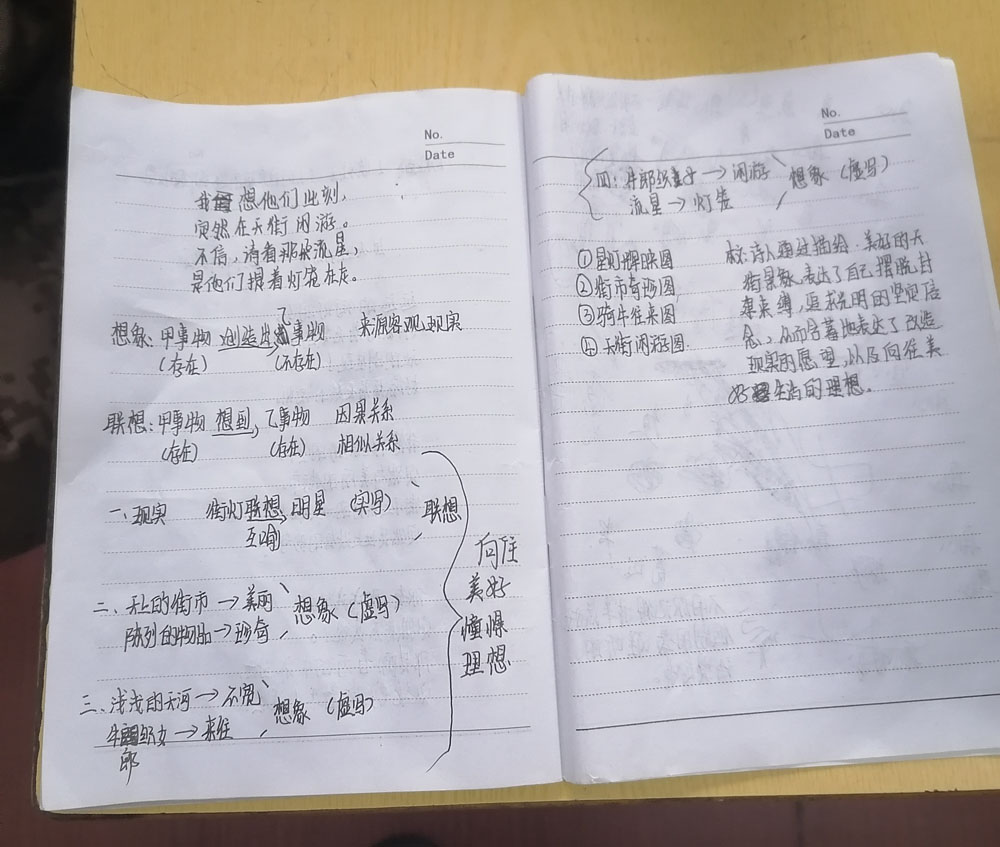 No.
Date
我想他们此刻,
定然在天街闲游。
不信,请看那朵流星,
是他们提着灯笼在走。
想象:甲事物 创造出 乙事物 来源客观现实
(存在) (不存在)
联想:甲事物 想到 乙事物 因果关系
(存在) (存在) 相似关系
一、现实 街灯联想明星 (实写) 联想
互喻
二、天上的街市→美丽 想象(虚写)
陈列的物品→珍奇
三、浅浅的天河→不宽 想象(虚写)
牛郎织女→来往
向往
美好
憧憬
理想
No.
Date
四:牛郎织女→闲游 想象(虚写)
流星→灯笼
①星灯辉映图
②街市奇珍图
③骑牛往来图
④天街闲游图
诗人通过描绘美好的天
街景象,表达了自己摆脱封
束缚,追求光明的坚定信
念,从而含蓄地表达了改造
现实的愿望,以及向往美
好生活的理想。